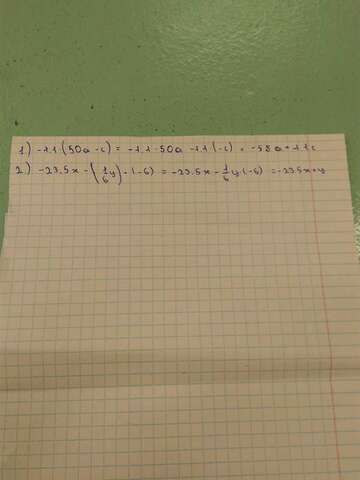 1) -1.1·(50a-c) = -1.1·50a -1.1(-c) = -58a+1.1c
2) -23.5x-(1/6y)·(-6) = -23.5x-1/6y(-6) = -23.5x+y